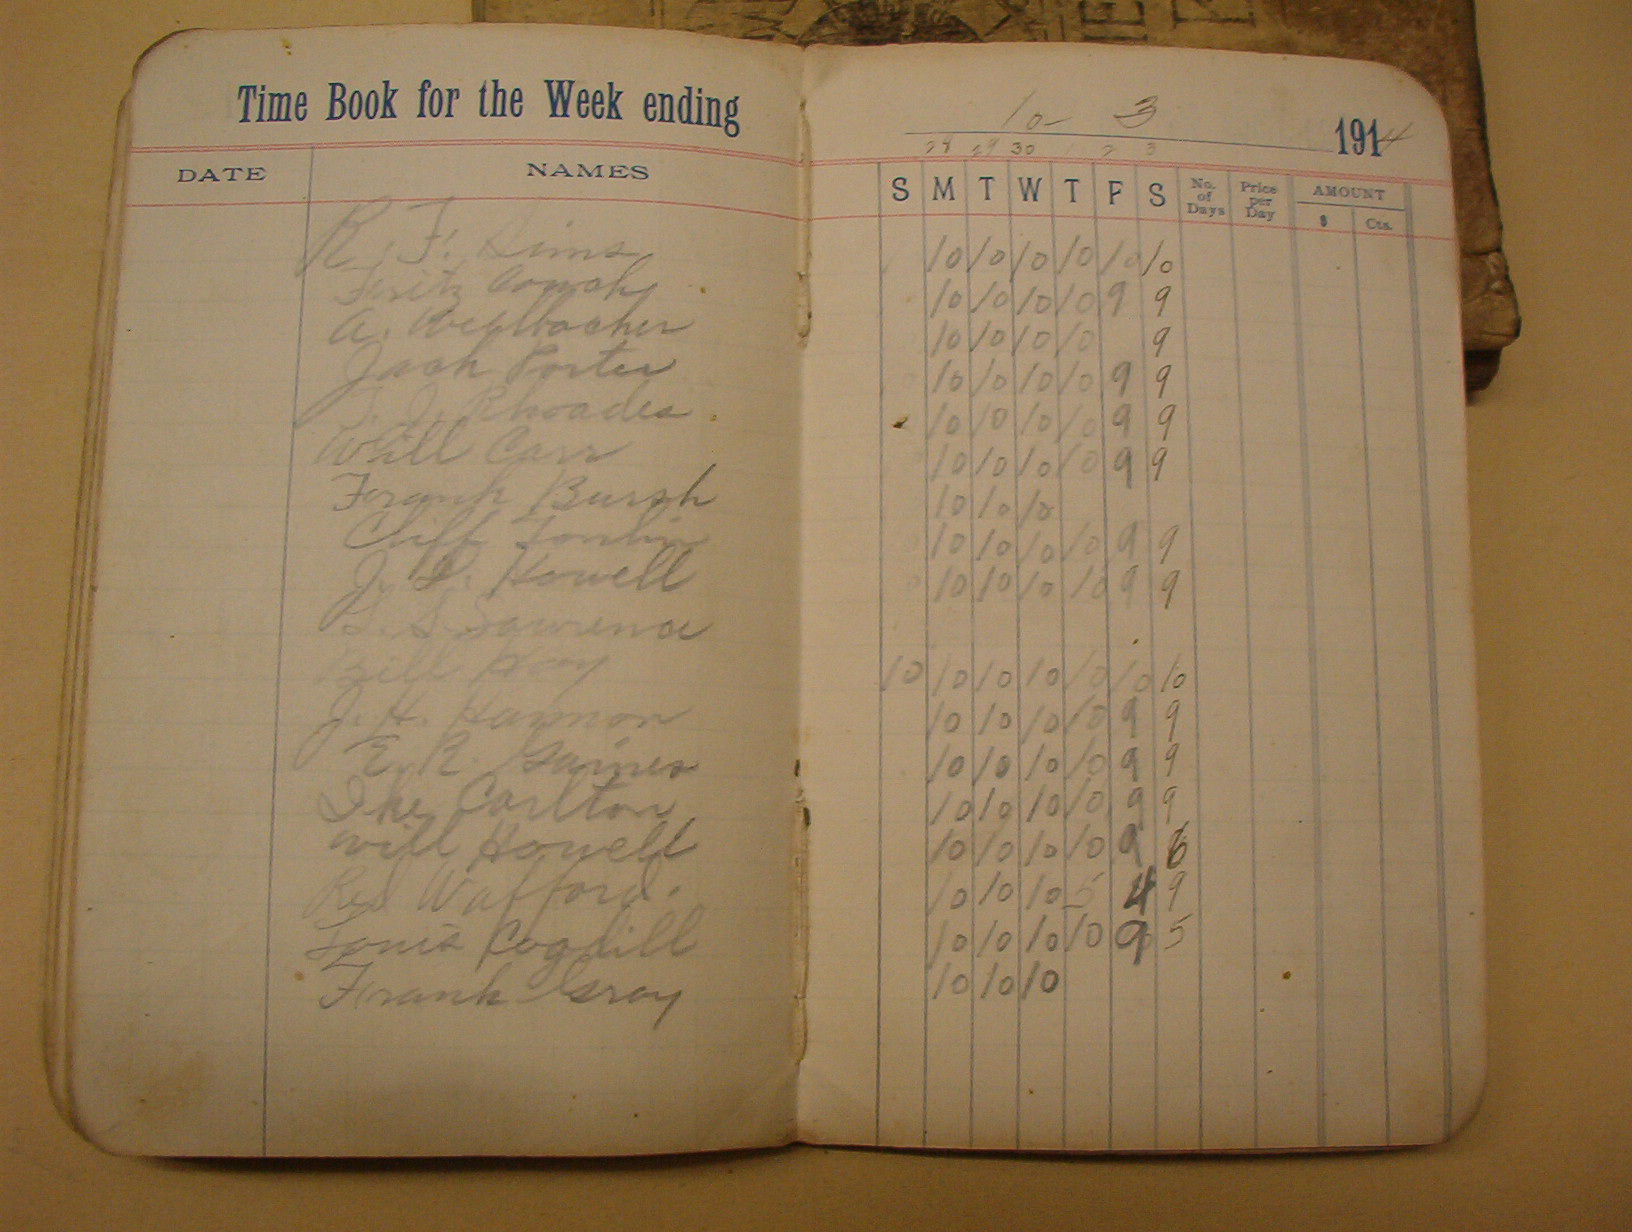 Time Book for the Week ending 10-3 1914
28 29 30 1 2 3
DATE NAMES S M T W T F S No. of Days Price per Day AMOUNT $ Cts.
R. F. Sims 10 10 10 10 10 10
Fritz 10 10 10 10 9 9
A. 10 10 10 10 9
Jack Porter 10 10 10 10 9 9
Rhoades 10 10 10 10 9 9
Will Carr 10 10 10 10 9 9
Frank Burgh 10 10 10
Cliff Tomlin 10 10 10 10 9 9
J. I. Howell 10 10 10 10 9 9
Lawrence
Bill Hay 10 10 10 10 10 10 10
J. H. Harmon 10 10 10 10 9 9
E. R. Gaines 10 10 10 10 9 9
Ike Carlton 10 10 10 10 9 9
Will Howell 10 10 10 10 9 6
Red Wafford. 10 10 10 5 4 9
Louis Cogdill 10 10 10 10 9 5
Frank Gray 10 10 10